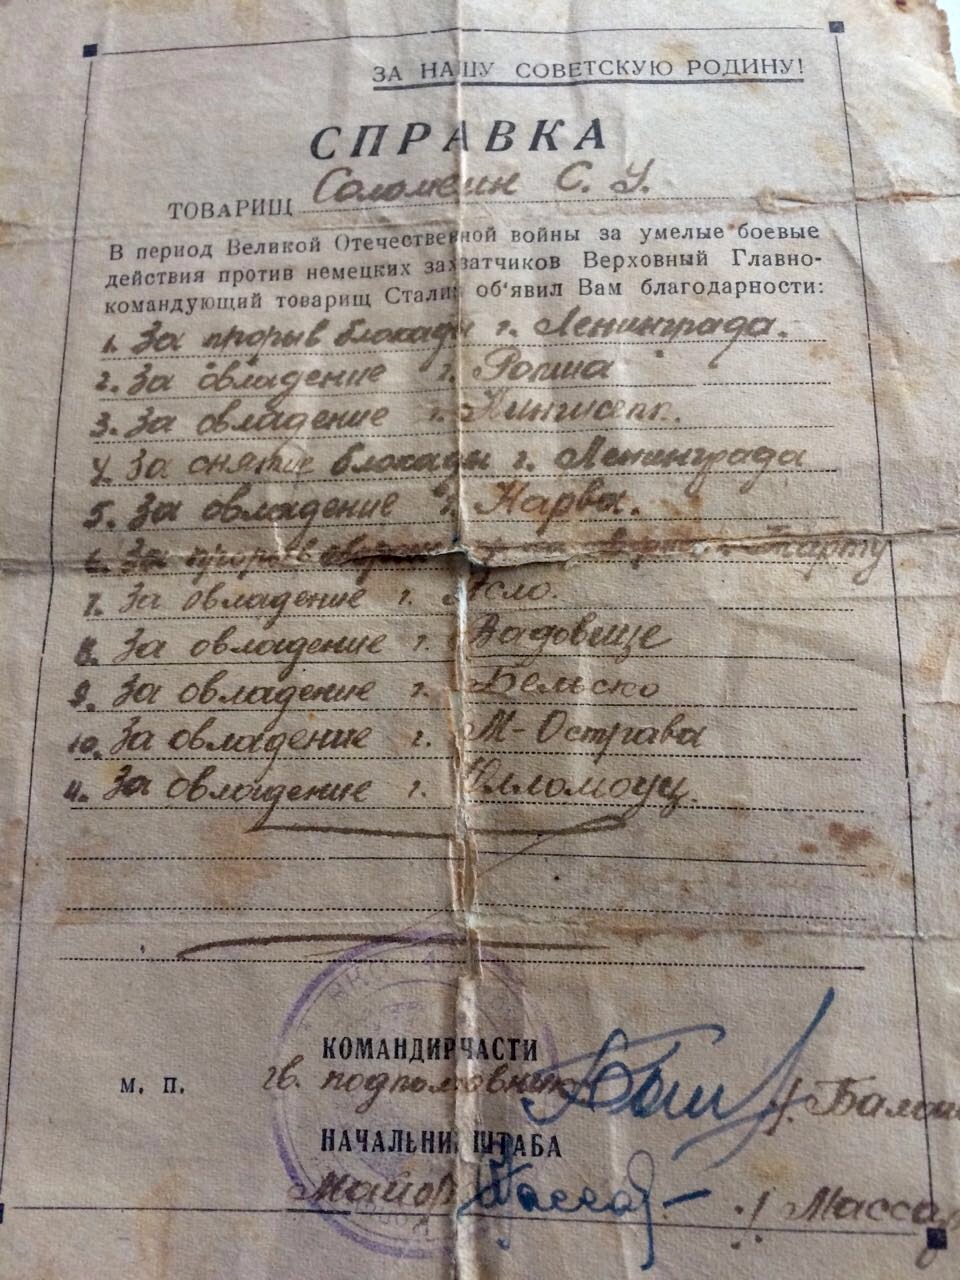 ЗА НАШУ СОВЕТСКУЮ РОДИНУ!
СПРАВКА
ТОВАРИЩ Соломеин С. У.
В период Великой Отечественной войны за умелые боевые
действия против немецких захватчиков Верховный Главно-
командующий товарищ Сталин об'явил Вам благодарности:
1. За прорыв блокады г. Ленинграда.
2. За овладение г. Ропша
3. За овладение г. Кингисепп.
4. За снятие блокады г. Ленинграда
5. За овладение г. Нарва.
6. За прорыв Тарту
7. За овладение г. Ясло.
8. За овладение г. Вадовице
9. За овладение г. Бельско
10. За овладение г. М-Острава
11. За овладение г. Оломоуц.
КОМАНДИР ЧАСТИ
М. П. гв. подполковник
НАЧАЛЬНИК ШТАБА
Майор